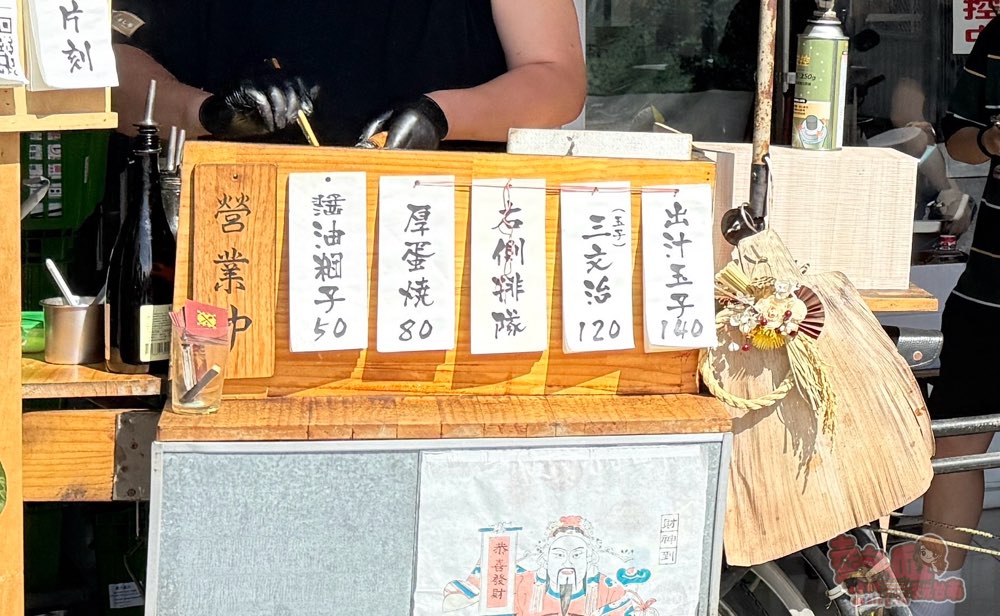 片刻
營業中
醬油糰子
50
厚蛋燒
80
右側排隊
(玉子)
三文治
120
出汁玉子
140
350g
恭喜發財
財神到